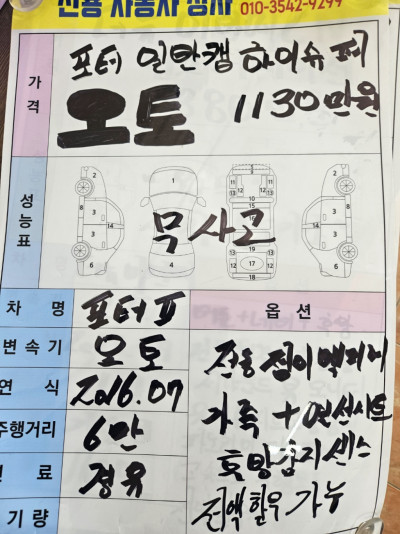 신용 자동차 상사 010-3542-9299
가격
포터 일반캡 하이슈퍼
오토 1130만원
성능표
무사고
차 명 포터Ⅱ
옵 션
변속기 오토
전동접이백미러
연 식 2016.07
가죽 + 열선시트
주행거리 6만
후방감지센스
연 료 경유
전액할부 가능
기량